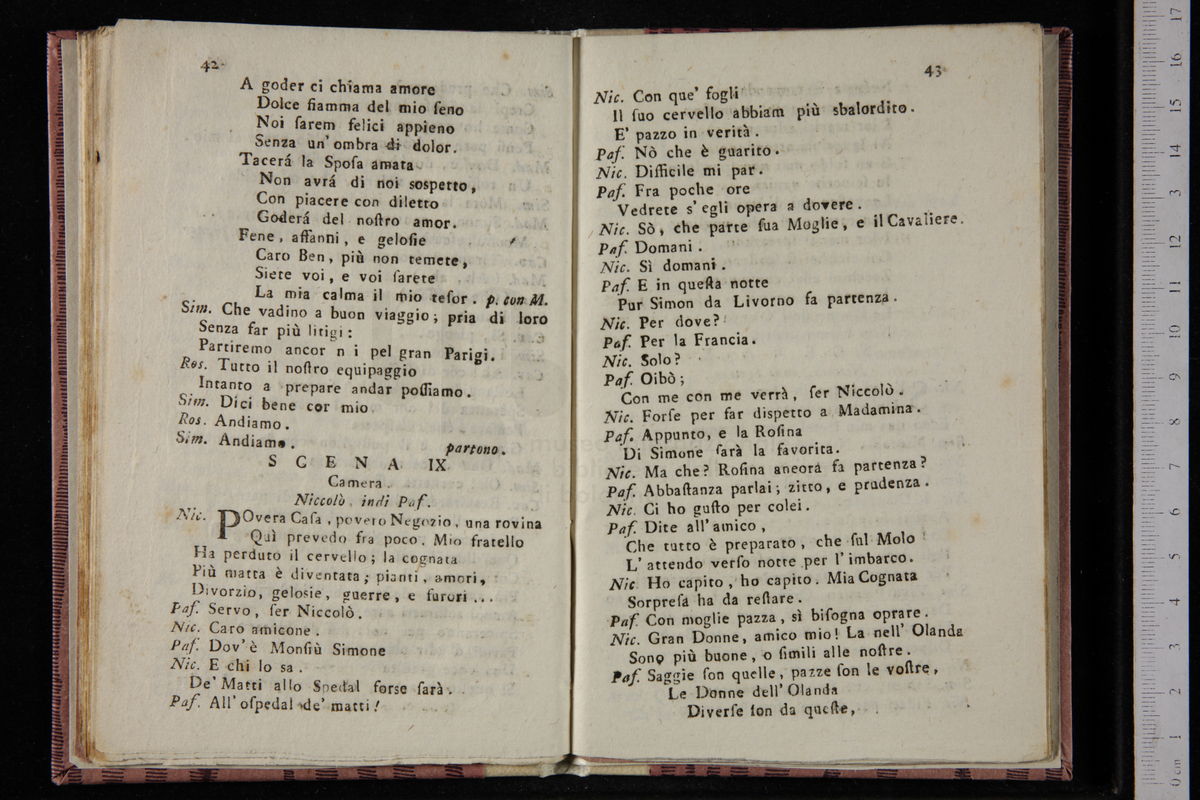 42
A goder ci chiama amore
Dolce fiamma del mio ſeno
Noi ſarem felici appieno
Senza un' ombra di dolor.
Tacerá la Spoſa amata
Non avrá di noi sospetto,
Con piacere con diletto
Goderá del noſtro amor.
Fene, affanni, e geloſie
Caro Ben, più non temete,
Siete voi, e voi ſarete
La mia calma il mio teſor. p. con M.
Sim. Che vadino a buon viaggio; pria di loro
Senza far più litigi:
Partiremo ancor n i pel gran Parigi.
Ros. Tutto il noſtro equipaggio
Intanto a prepare andar poſſiamo.
Sim. Dici bene cor mio
Ros. Andiamo.
Sim. Andiamo. partono.
SCENA IX.
Camera.
Niccolò, indi Paf.
Nic. POvera Caſa, povero Negozio, una rovina
Quì prevedo fra poco. Mio fratello
Ha perduto il cervello; la cognata
Più matta è diventata; pianti, amori,
Divorzio, gelosie, guerre, e furori...
Paf. Servo, ſer Niccolò.
Nic. Caro amicone.
Paf. Dov' è Monſiù Simone
Nic. E chi lo sa.
De' Matti allo Spedal forse ſarà.
Paf. All' oſpedal de' matti!
43
Nic. Con que' fogli
Il ſuo cervello abbiam più sbalordito.
E' pazzo in verità.
Paf. Nò che è guarito.
Nic. Difficile mi par.
Paf. Fra poche ore
Vedrete s' egli opera a dovere.
Nic. Sò, che parte ſua Moglie, e il Cavaliere.
Paf. Domani.
Nic. Sì domani.
Paf. E in queſta notte
Pur Simon da Livorno fa partenza.
Nic. Per dove?
Paf. Per la Francia.
Nic. Solo?
Paf. Oibò;
Con me con me verrà, ſer Niccolò.
Nic. Forſe per far dispetto a Madamina.
Paf. Appunto, e la Roſina
Di Simone ſarà la favorita.
Nic. Ma che? Roſina ancora fa partenza?
Paf. Abbaſtanza parlai; zitto, e prudenza.
Nic. Ci ho guſto per colei.
Paf. Dite all' amico,
Che tutto è preparato, che ſul Molo
L' attendo verſo notte per l' imbarco.
Nic. Ho capito, ho capito. Mia Cognata
Sorpreſa ha da reſtare.
Paf. Con moglie pazza, sì biſogna oprare.
Nic. Gran Donne, amico mio! La nell' Olanda
Sono più buone, o ſimili alle noſtre.
Paf. Saggie ſon quelle, pazze ſon le voſtre,
Le Donne dell' Olanda
Diverſe ſon da queſte,